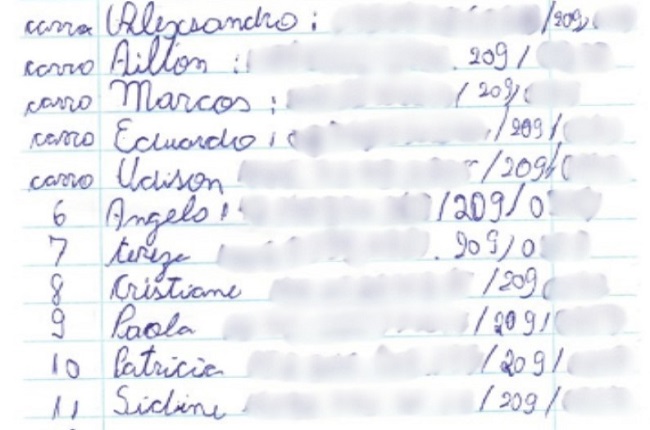 carro Alexsandro: /209
carro Ailton: 209/
carro Marcos: /209
carro Eduardo: /209/
carro Udison /209/
6 Angelo: /209/0
7 tereza 209/0
8 Cristiane /209
9 Paola /209/
10 Patricia /209/
11 Sidine /209/